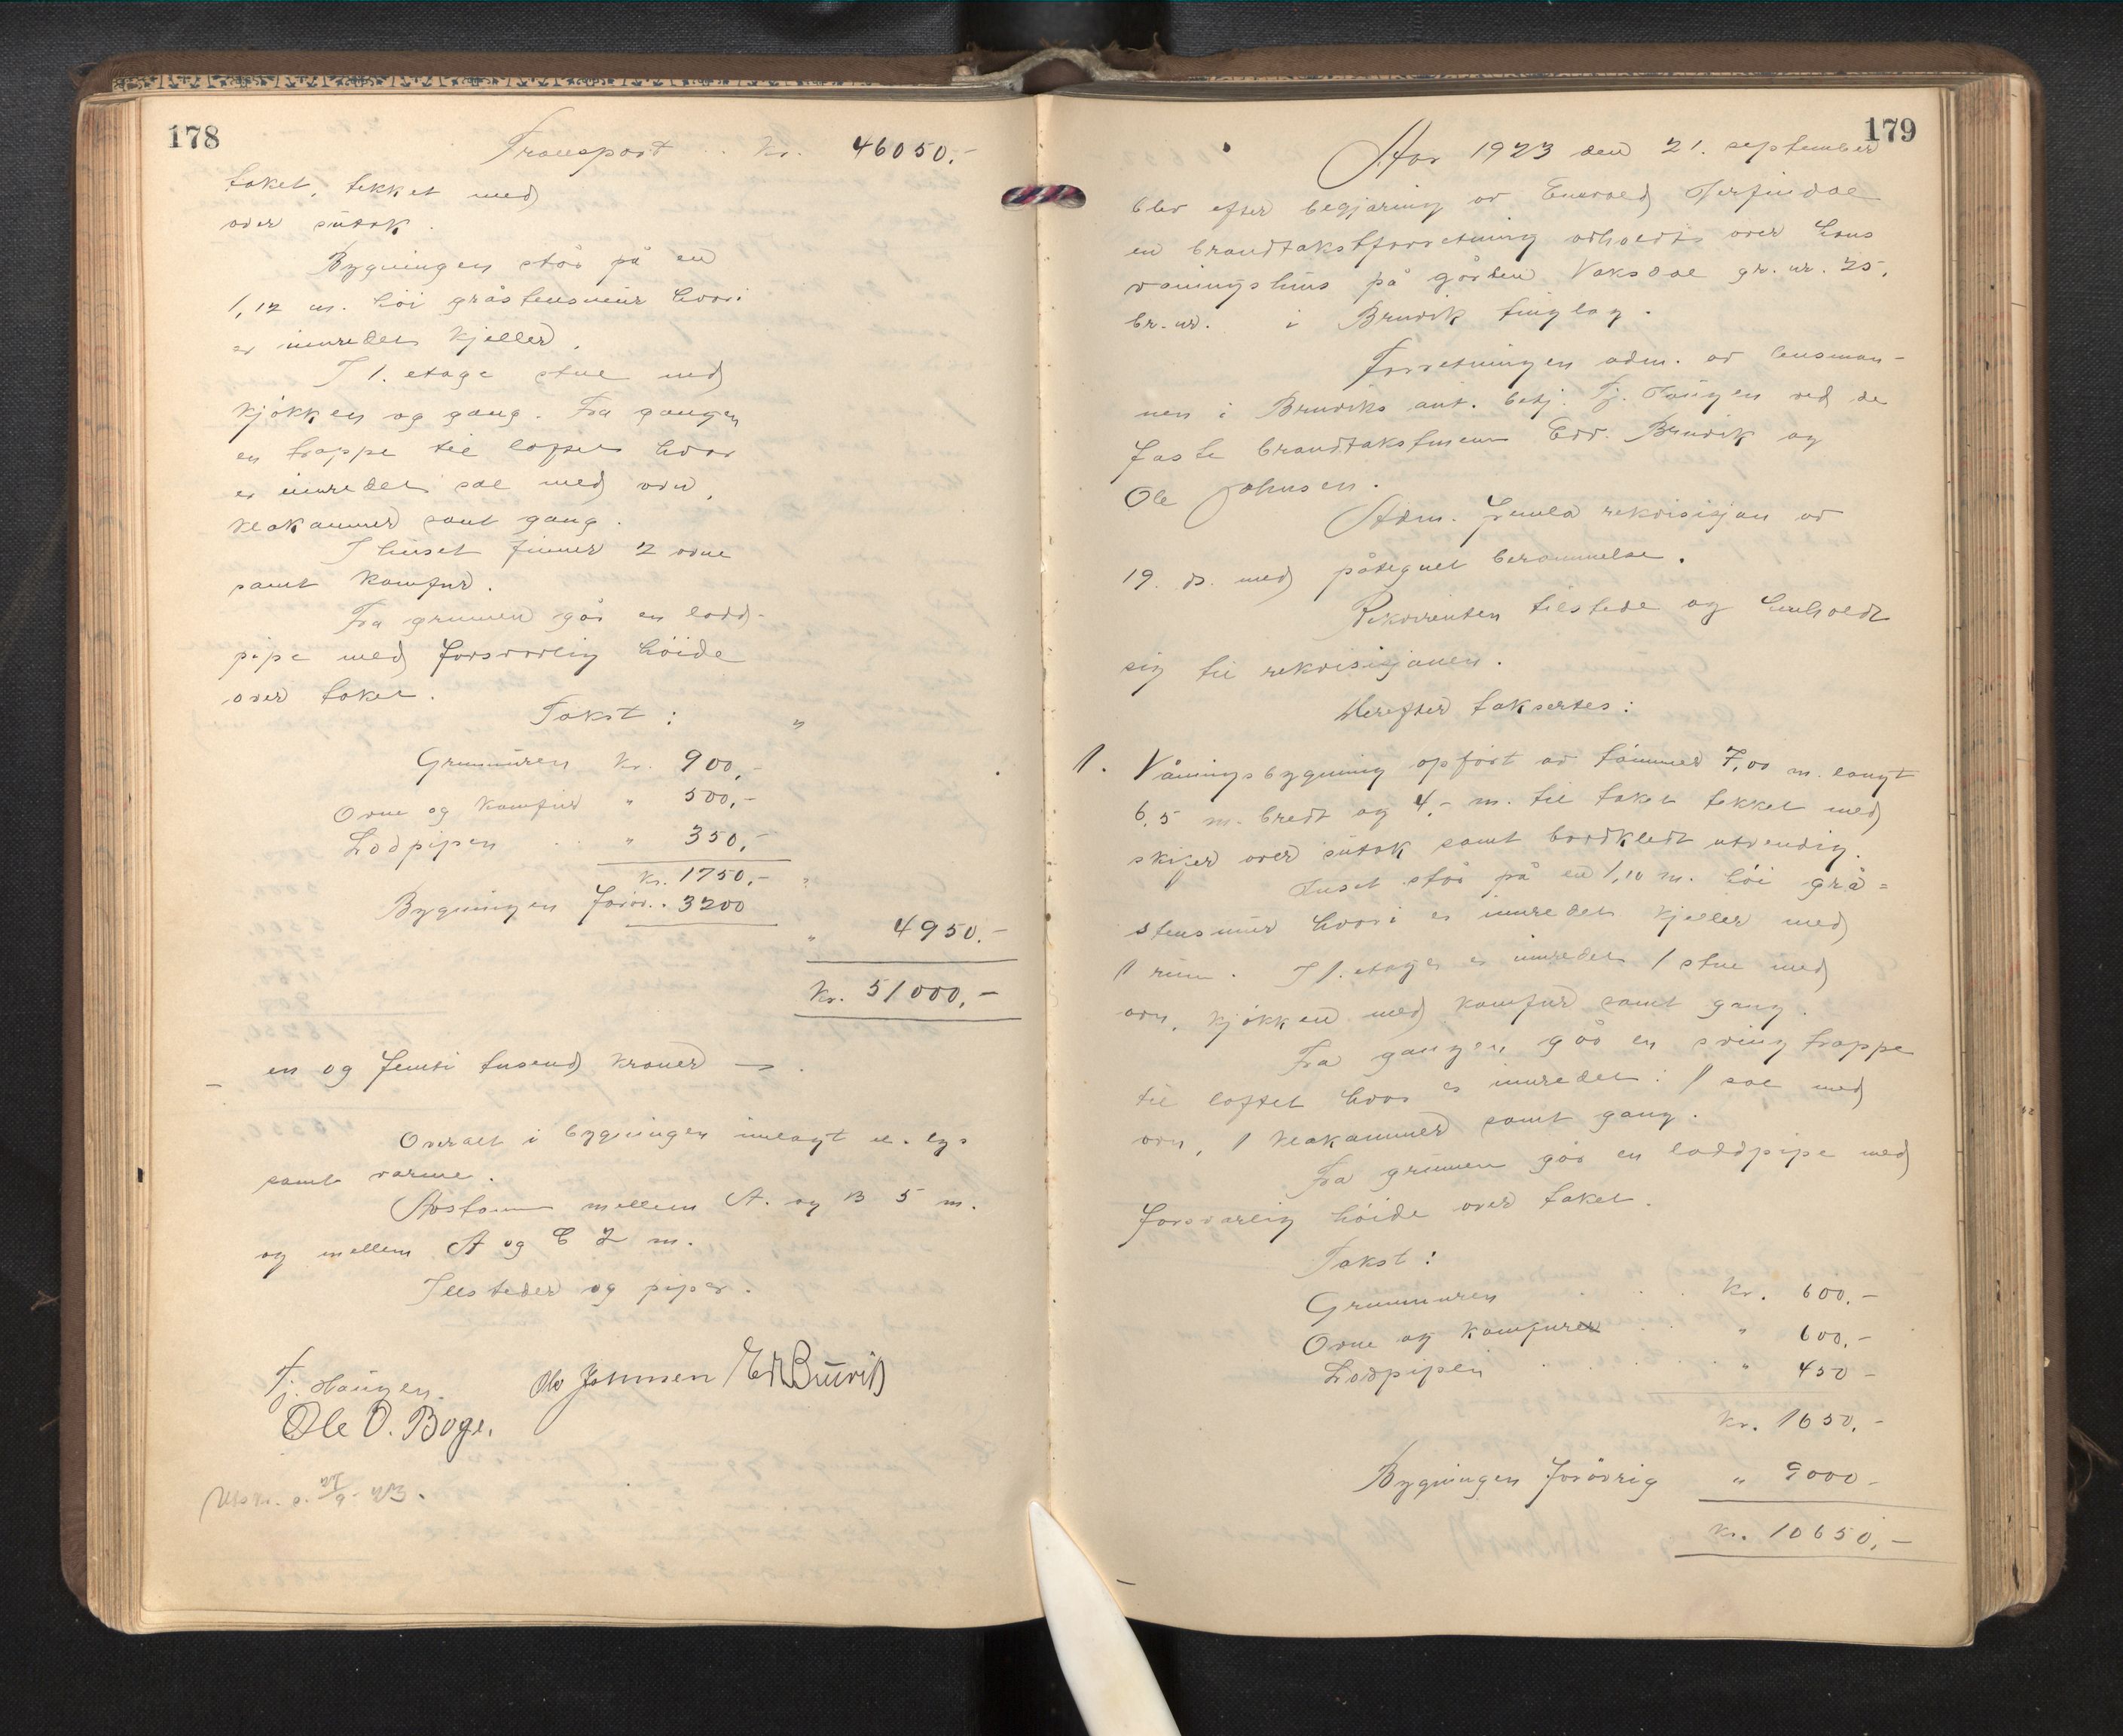 178
Transport .. Kr. 46050.-
taket, tekket med
over sutak.
Bygningen står på en
1,12 m. høi gråstensmur hvori
er innredet kjeller.
I 1. etage stue med
kjøkken og gang. Fra gangen
en trappe til loftet hvor
er innredet sal med ovn,
klækammer samt gang.
I huset finnes 2 ovne
samt komfur.
Fra grunnen går en lodd-
pipe med forsvarlig høide
over taket.
Takst: "
Grunnmuren Kr. 900,-
Ovne og komfur " 500,-
Lodpipen .. " 350,-
Kr. 1750,- "
Bygningen forøv.. 3200
" 4950.-
Kr. 51000,-
- en og femti tusend kroner - .
Overalt i bygningen innlagt el. lys
samt varme.
Avstann mellem A. og B 5 m.
og mellem A og C 2 m.
Illsteder og piper.
Tj. Haugen. Ole Johnsen Ed Bruvik
Ole O. Boge.
179
Aar 1923 den 21. september
blev efter begjæring av Terfindal
en brandtakstforretning avholdt over hans
våningshus på gården Vaksdal gr. nr. 25,
br. nr. i Bruvik tinglag.
Forretningen adm. av lensman-
nen i Bruviks aut. betj. Tj. Haugen med de
faste brandtakstmenn Edv. Bruvik og
Ole Johnsen.
Adm. fremla rekvisisjon av
19. ds. med påtegnet berammelse.
Rekvirenten tilstede og henholdt
sig til rekvisisjonen.
Herefter taksertes:
1. Våningsbygning opført av tømmer 7,00 m. langt
6,5 m. bredt og 4,- m. til taket tekket med
skifer over sutak samt bordkledt utvendig.
Huset står på en 1,10 m. høi grå=
stensmur hvori er innredet kjeller med
1 rum. I 1. etage er innredet 1 stue med
ovn, kjøkken med komfur samt gang.
Fra gangen går en sving trappe
til loftet hvor er innredet: 1 sal med
ovn, 1 klækammer samt gang.
Fra grunnen går en loddpipe med
forsvarlig høide over taket.
Takst:
Grunnmuren . . . Kr. 600.-
Ovne og komfurer . . " 600,-
Lodpipen . . . . . " 450 -
Kr. 1650,-
Bygningen forøvrig " 9000 -
Kr. 10650,-
-